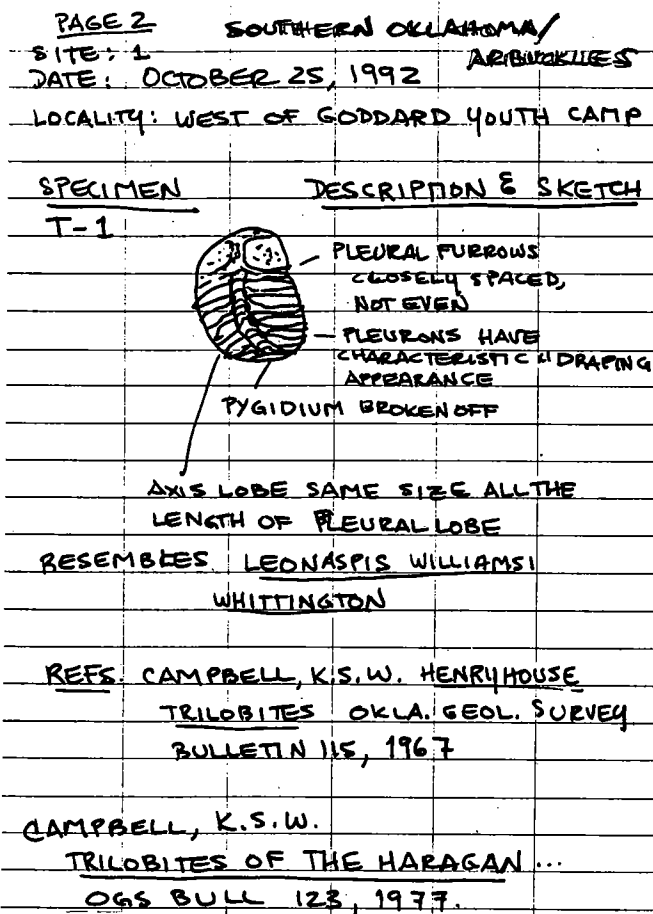 PAGE 2
SOUTHERN OKLAHOMA/
ARBUCKLES
SITE: 1
DATE: OCTOBER 25, 1992
LOCALITY: WEST OF GODDARD YOUTH CAMP
SPECIMEN
DESCRIPTION & SKETCH
T-1
PLEURAL FURROWS
CLOSELY SPACED,
NOT EVEN
PLEURONS HAVE
CHARACTERISTIC DRAPING
APPEARANCE
PYGIDIUM BROKEN OFF
AXIS LOBE SAME SIZE ALL THE
LENGTH OF PLEURAL LOBE
RESEMBLES LEONASPIS WILLIAMSI
WHITTINGTON
REFS. CAMPBELL, K.S.W. HENRYHOUSE
TRILOBITES OKLA. GEOL. SURVEY
BULLETIN 115, 1967
CAMPBELL, K.S.W.
TRILOBITES OF THE HARAGAN...
OGS BULL 123, 1977.